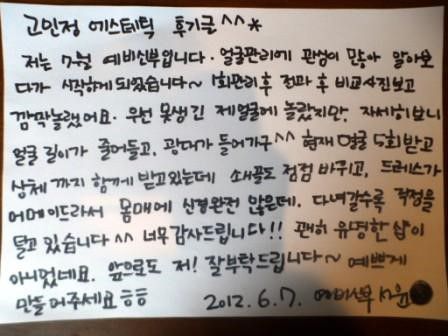 고인정 에스테틱 후기글^^*
저는 7월 예비신부입니다. 얼굴관리에 관심이 많아 알아보
다가 시작하게 되었습니다~ 1회관리 후 전과 후 비교사진보고
깜짝놀랬어요. 우선 못생긴 제얼굴에 놀랐지만, 자세히보니
얼굴 길이가 줄어들고, 광대가 들어가구^^ 현재 얼굴 5회받고
상체까지 함께 받고있는데 쇄골도 점점 바뀌고, 드레스가
어메이드라서 몸매에 신경완전 않은데. 다녀갈수록 걱정을
덜고 있습니다^^ 너무감사드립니다!! 괜히 유명한 샵이
아니었네요. 앞으로도 저! 잘부탁드립니다~ 예쁘게
만들어주세요 ㅎㅎ 2012. 6. 7. 예비신부 서윤